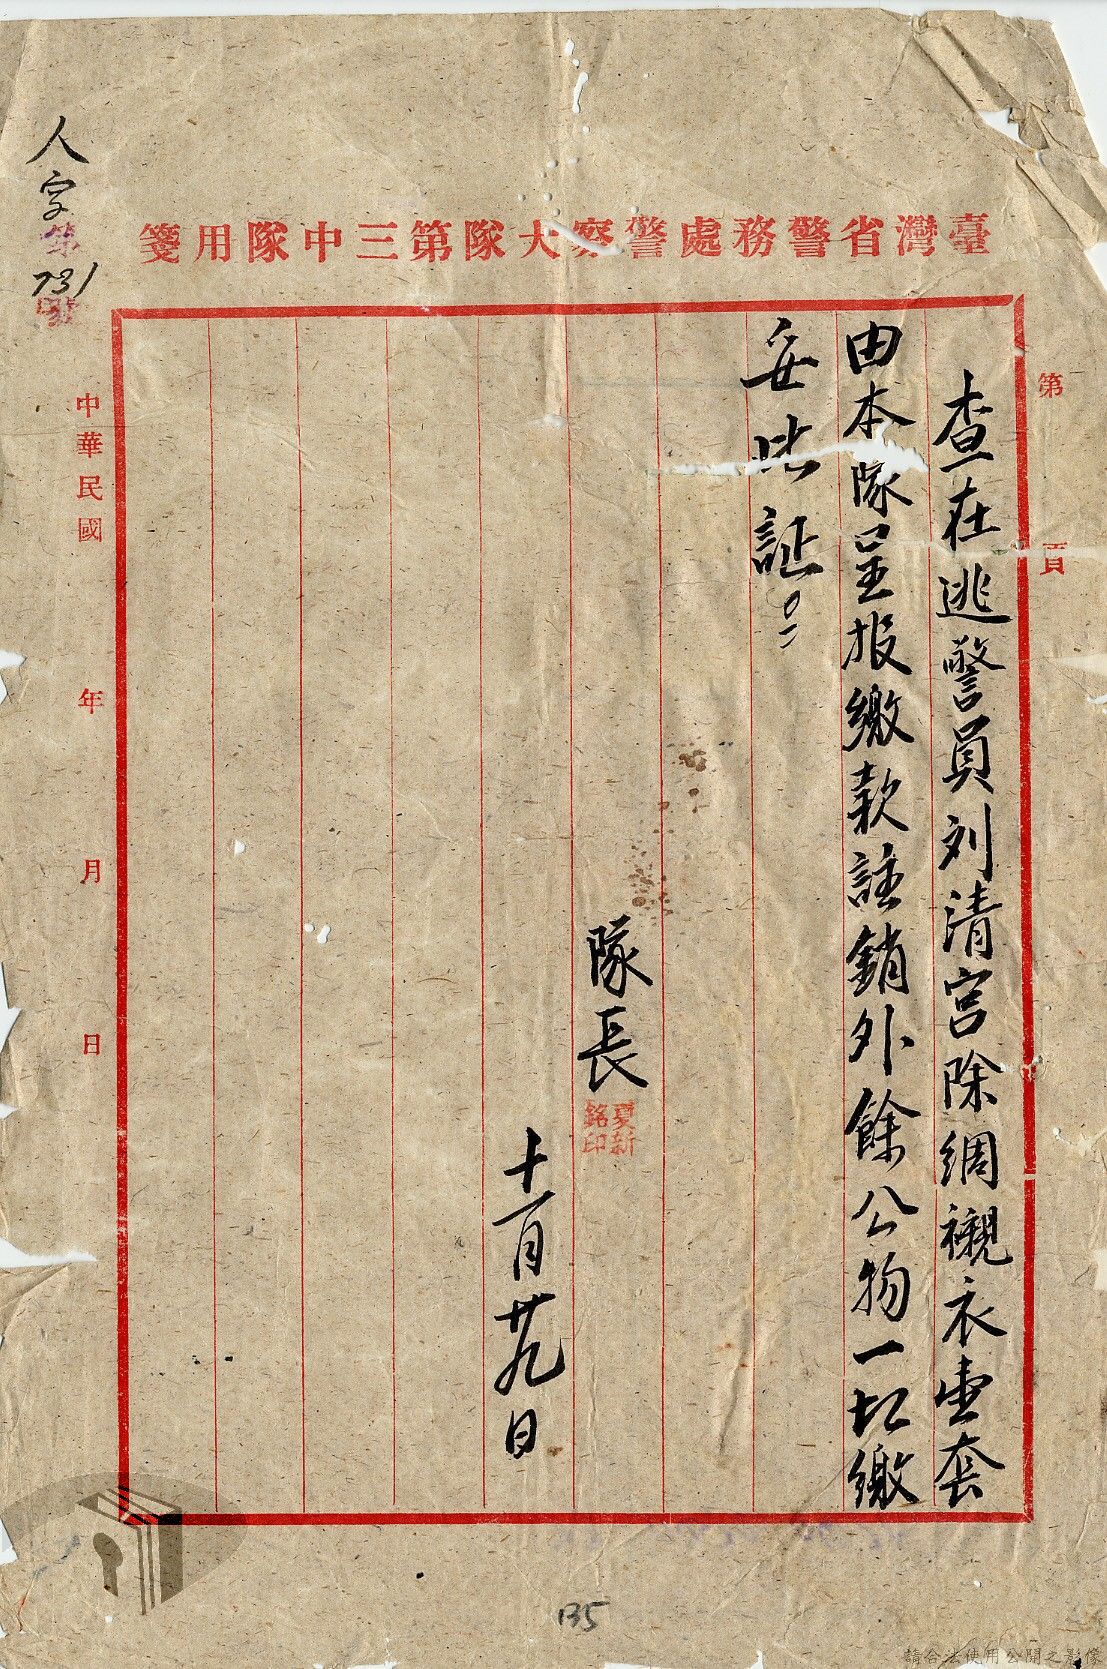 臺灣省警務處警察大隊第三中隊用箋
第 頁
查在逃警員刘清宮除綢襯衣壹套
由本隊呈报繳款註銷外餘公物一切繳
妥此証
隊長
夏新
銘印
十一月廿九日
中華民國 年 月 日
人字第731號
135
請合法使用公開之影像